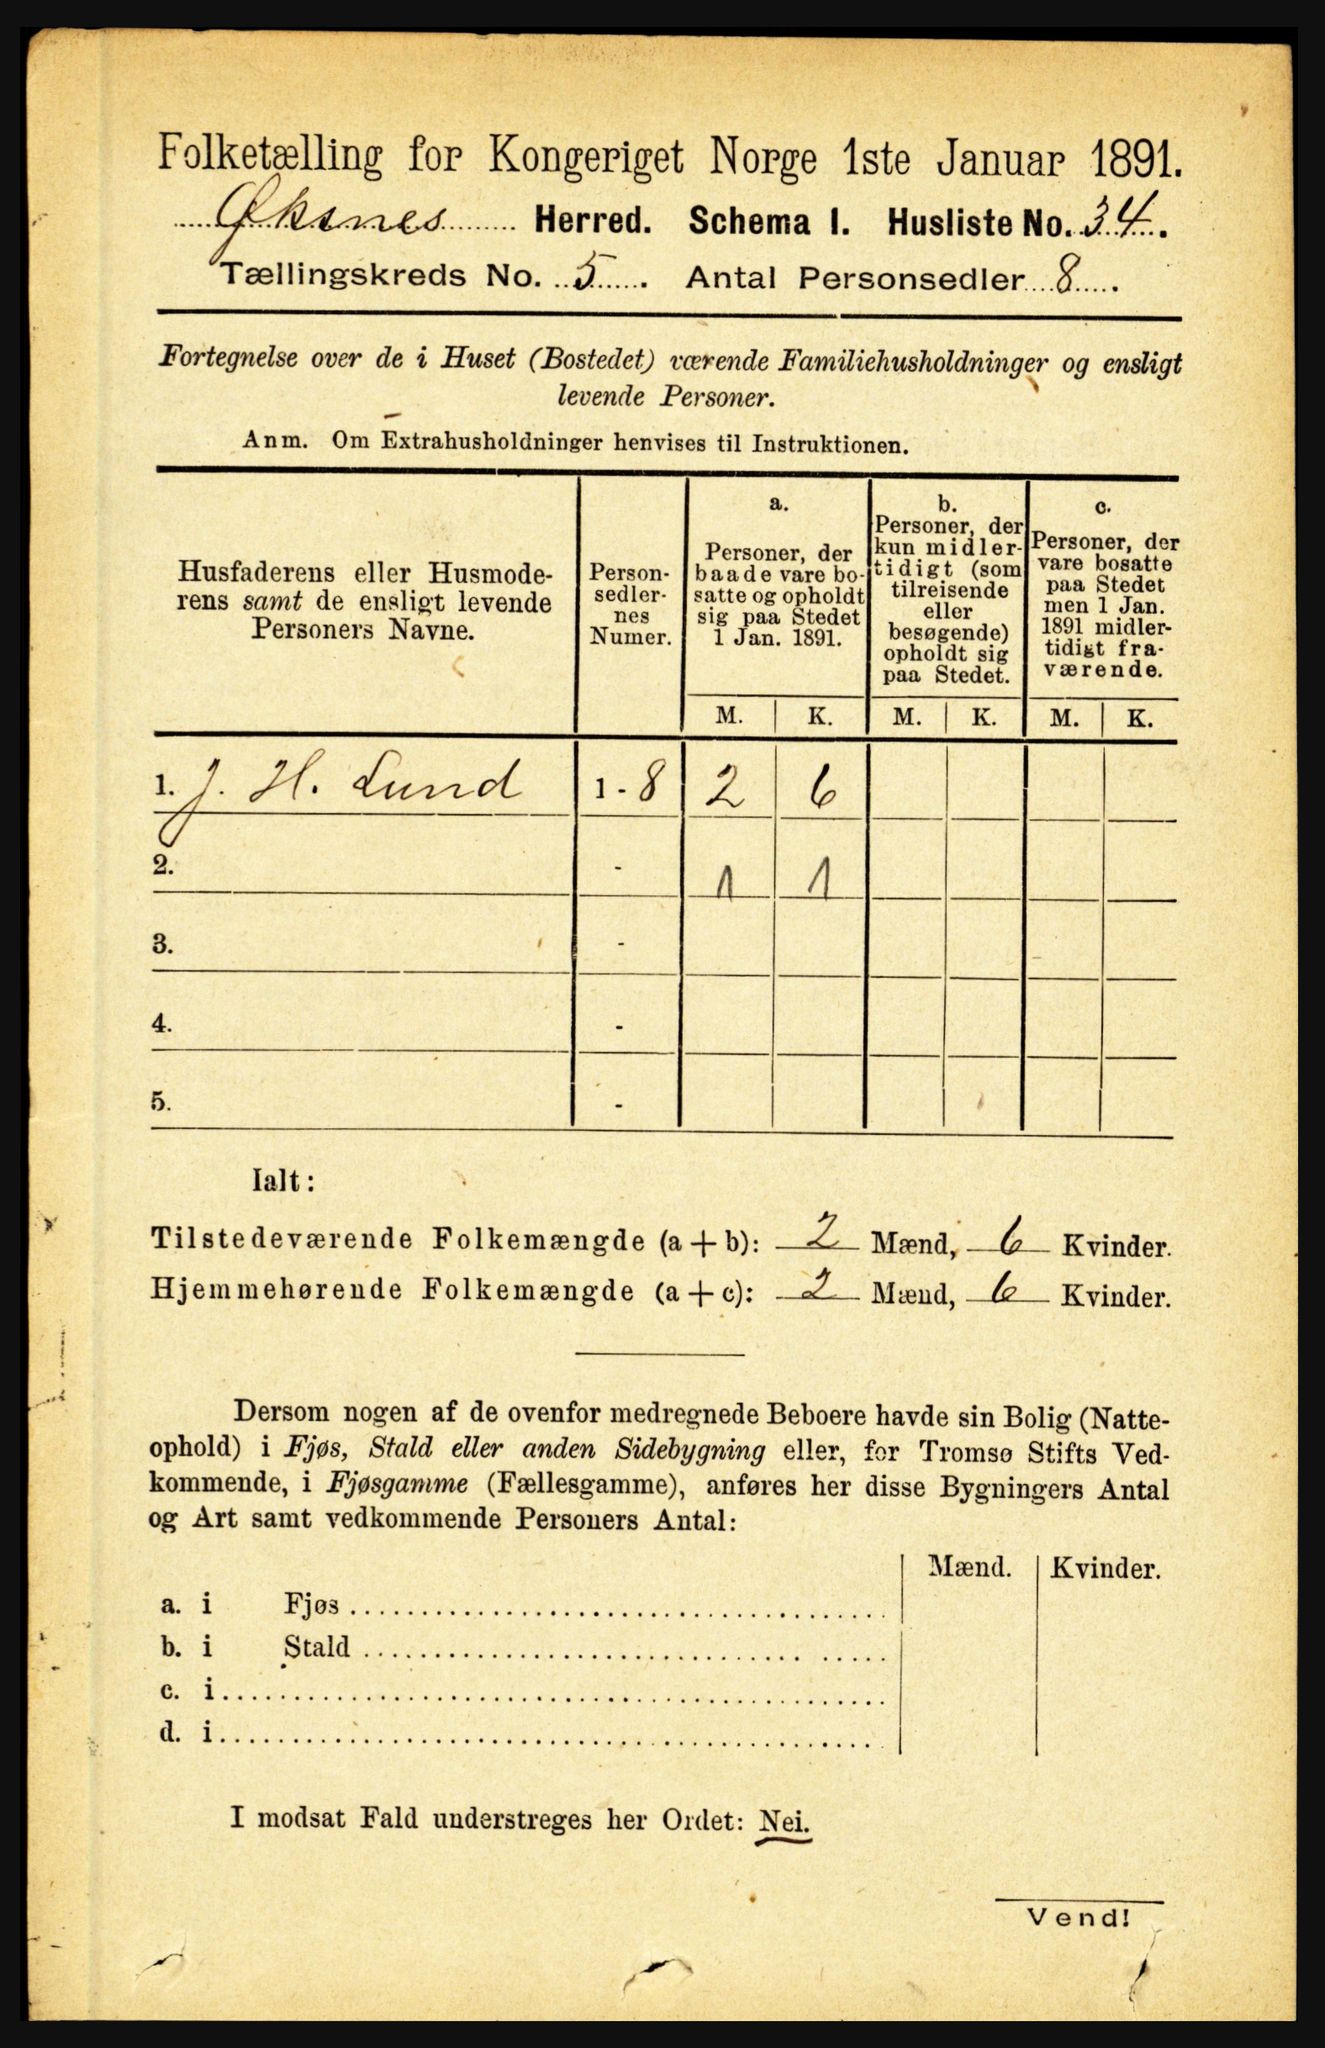 Folketælling for Kongeriget Norge 1ste Januar 1891.
Øksnes Herred. Schema I. Husliste No. 34.
Tællingskreds No. 5. Antal Personsedler 8.
Fortegnelse over de i Huset (Bostedet) værende Familiehusholdninger og ensligt
levende Personer.
Anm. Om Extrahusholdninger henvises til Instruktionen.
Husfaderens eller Husmode-
rens samt de ensligt levende
Personers Navne.
Person-
sedler-
nes
Numer.
a.
Personer, der
baade vare bo-
satte og opholdt
sig paa Stedet
1 Jan. 1891.
b.
Personer, der
kun midler-
tidigt (som
tilreisende
eller
besøgende)
opholdt sig
paa Stedet.
c.
Personer, der
vare bosatte
paa Stedet
men 1 Jan.
1891 midler-
tidigt fra-
værende.
M. K. M. K. M. K.
1. J. H. Lund 1 - 8 2 6
2. - 1 1
3. -
4. -
5. -
Ialt:
Tilstedeværende Folkemængde (a + b): 2 Mænd, 6 Kvinder.
Hjemmehørende Folkemængde (a + c): 2 Mænd, 6 Kvinder.
Dersom nogen af de ovenfor medregnede Beboere havde sin Bolig (Natte-
ophold) i Fjøs, Stald eller anden Sidebygning eller, for Tromsø Stifts Ved-
kommende, i Fjøsgamme (Fællesgamme), anføres her disse Bygningers Antal
og Art samt vedkommende Personers Antal:
Mænd. Kvinder.
a. i Fjøs
b. i Stald
c. i
d. i
I modsat Fald understreges her Ordet: Nei.
Vend!